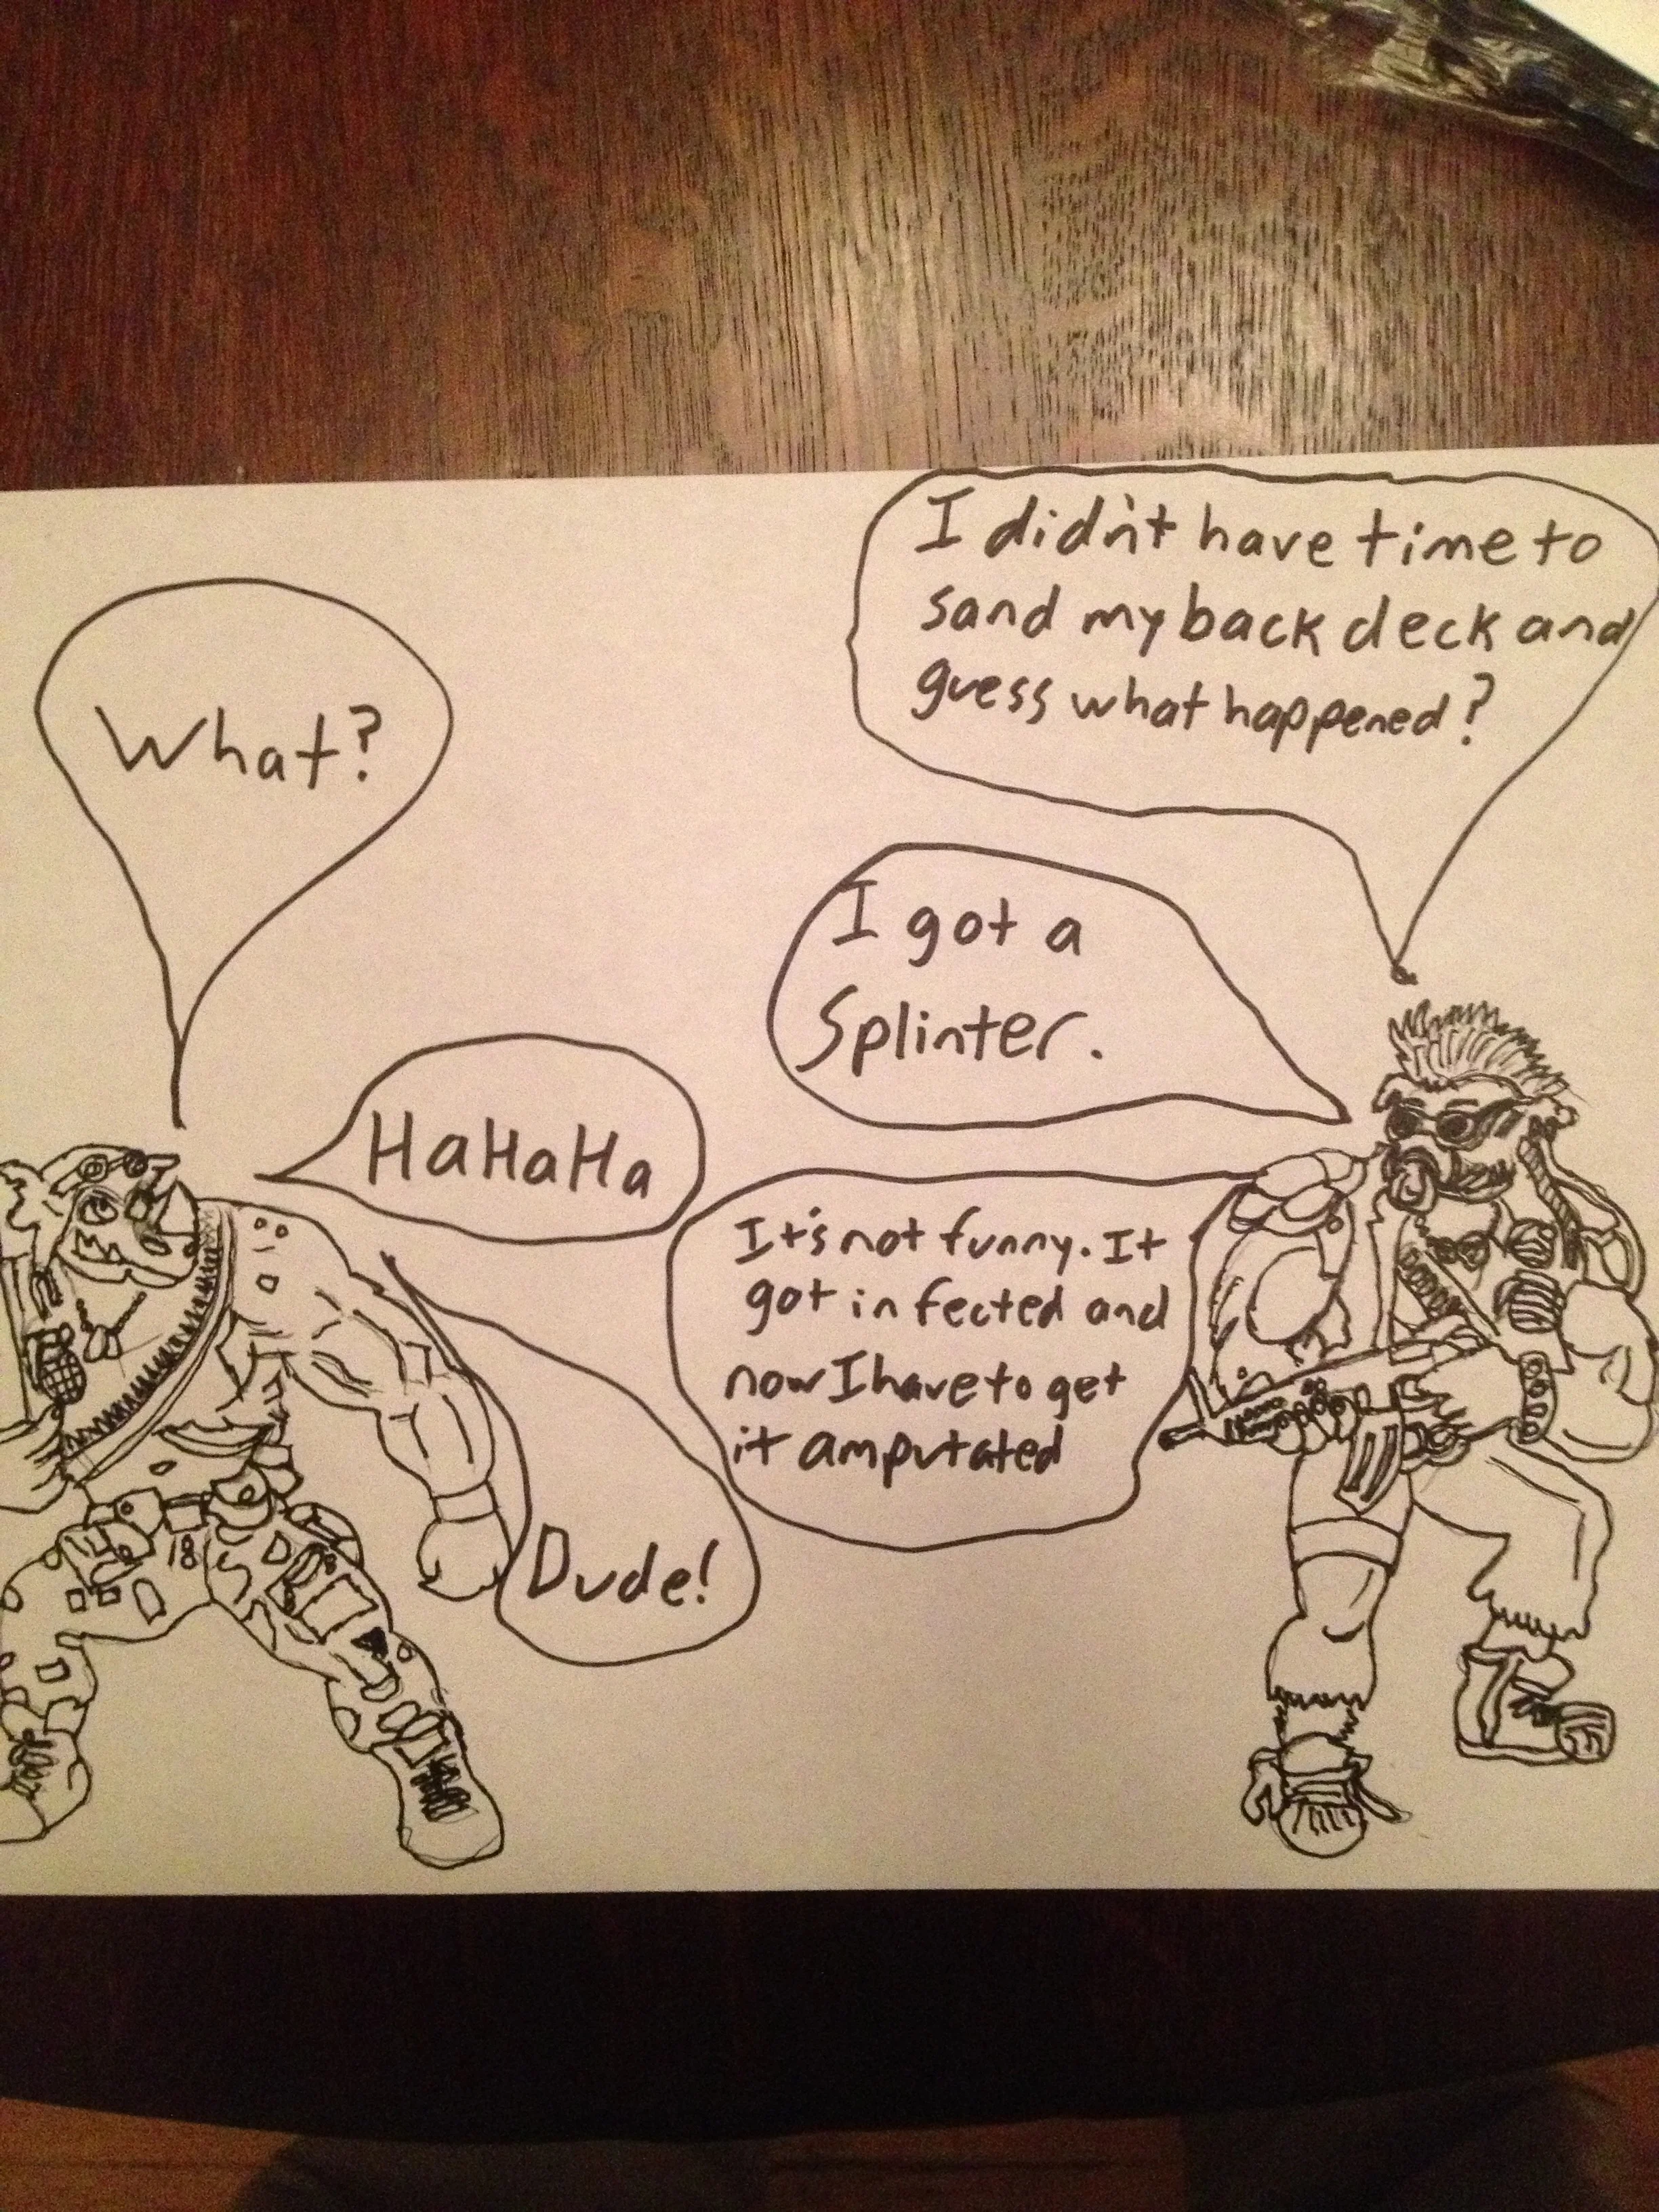 I didn't have time to
sand my back deck and
guess what happened?
What?
I got a
Splinter.
HaHaHa
It's not funny. It
got infected and
now I have to get
it amputated
Dude!